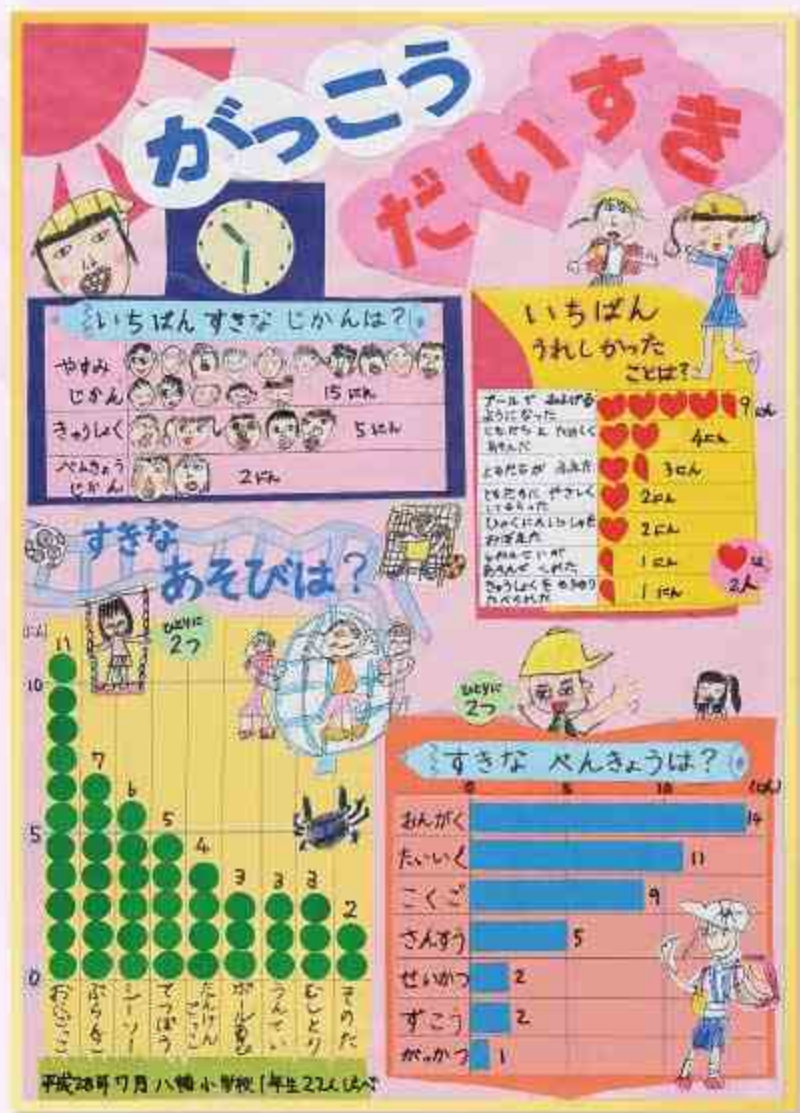 がっこう
だいすき
いちばんすきなじかんは?
やすみ
じかん
15にん
きゅうしょく
5にん
べんきょう
じかん
2にん
いちばん
うれしかった
ことは?
プールで およげる
ようになった
9にん
ともだちと たのしく
あそんだ
4にん
ともだちが ふえた
3にん
ともだちに やさしく
してもらった
2にん
おぼえた
2にん
あそんで くれた
1にん
きゅうしょくを
たべられた
1にん
は
2人
すきな
あそびは?
ひとりに
2つ
(にん)
10
5
0
11
7
6
5
4
3
3
3
2
おにごっこ
ぶらんこ
シーソー
てつぼう
たんけん
ごっこ
ボール
うんてい
むしとり
そのた
平成28年7月八幡小学校1年生22人しらべ
ひとりに
2つ
すきな べんきょうは?
0
5
10
(にん)
おんがく
14
たいいく
11
こくご
9
さんすう
5
せいかつ
2
ずこう
2
がっかつ
1